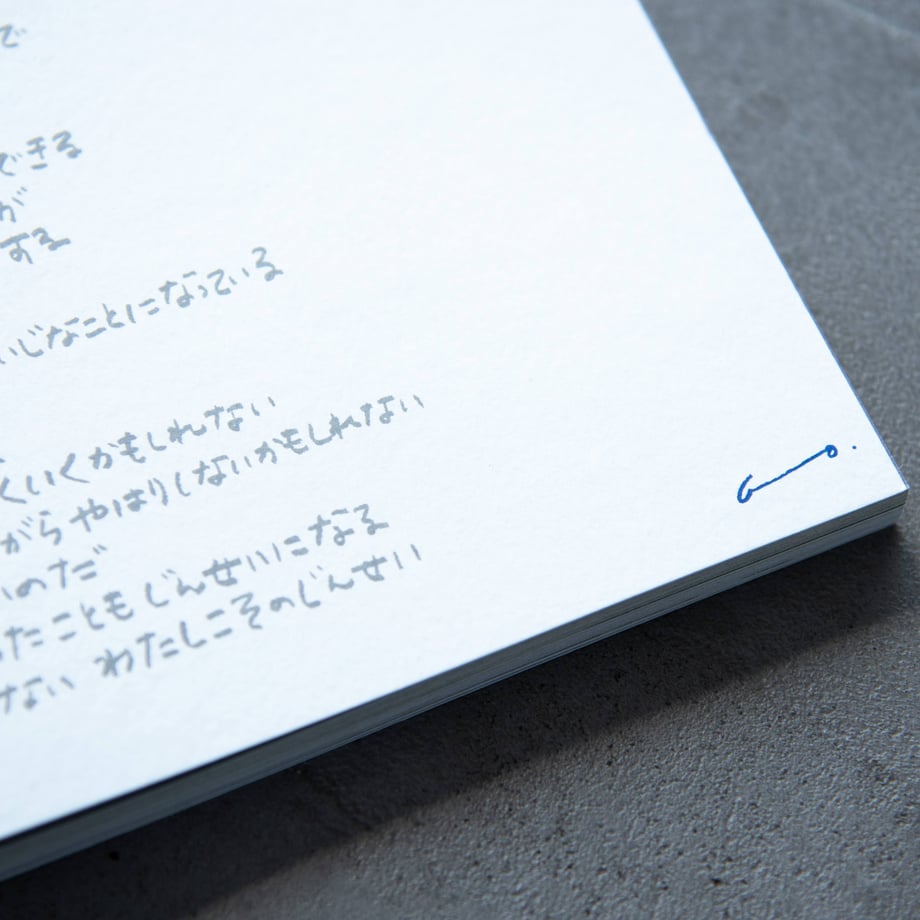 で
できる
が
する
いじなことになっている
くいくかもしれない
がら やはりしないかもしれない
いのだ
たことも じんせいになる
けない わたしこそのじんせい